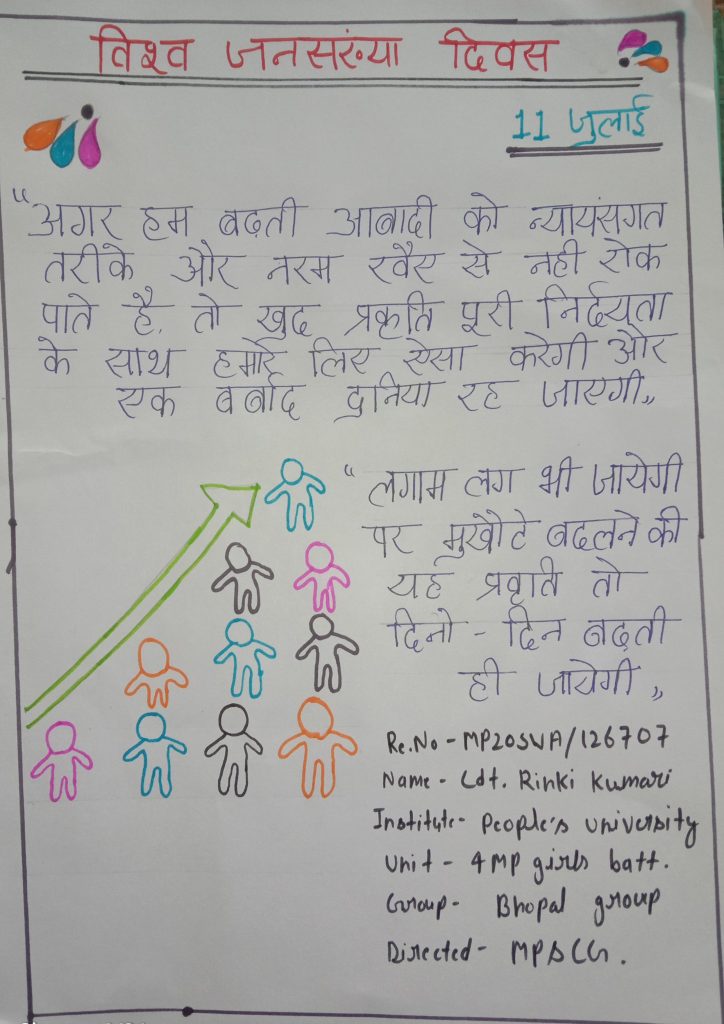 विश्व जनसंख्या दिवस
11 जुलाई
"अगर हम बढ़ती आबादी को न्यायसंगत
तरीके और नरम रवैए से नही रोक
पाते है, तो खुद प्रकृति पूरी निर्दयता
के साथ हमारे लिए ऐसा करेगी और
एक बर्बाद दुनिया रह जाएगी,,
"लगाम लग भी जायेगी
पर मुखौटे बदलने की
यह प्रवृति तो
दिनो - दिन बढ़ती
ही जायेगी,,
Re.No - MP20SWA/126707
Name - Cdt. Rinki Kumari
Institute- People's university
Unit - 4 MP girls batt.
Group - Bhopal group
Directed - MP&CG.